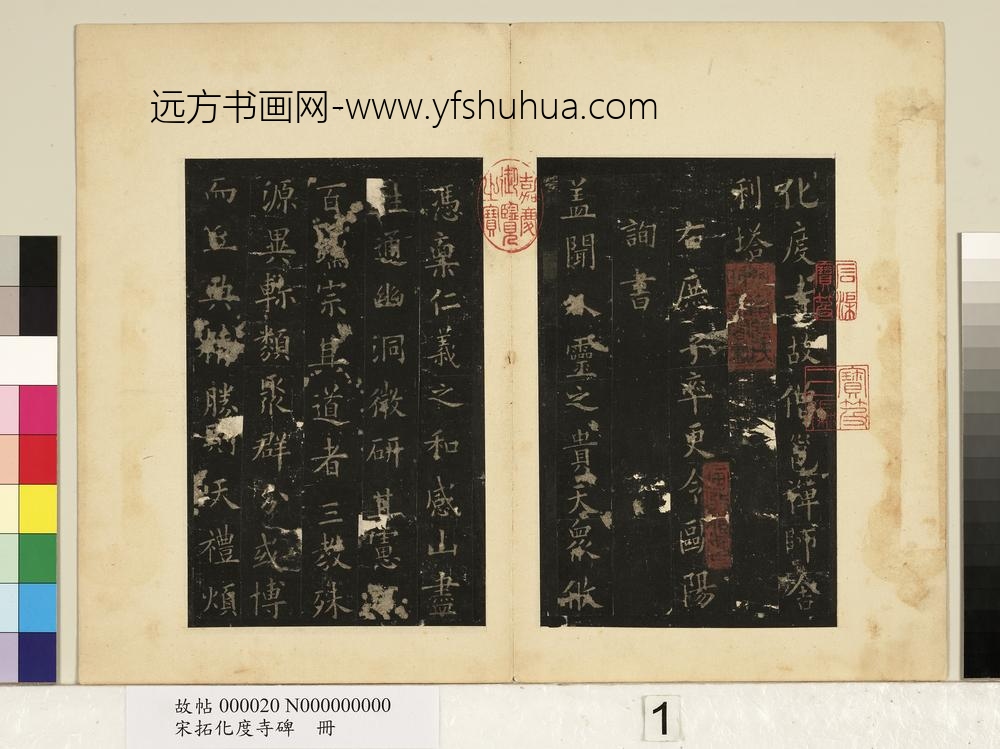 远方书画网-www.yfshuhua.com
化度寺故僧邕禪師舍
利塔
右庶子率更令歐陽
詢書
蓋聞人靈之貴天象攸
憑稟仁義之和感山盡
性通幽洞微研其慮
百宗其道者三教殊
源異軫類聚群分或博
而勝則天禮煩
嘉慶御覽之寶
故帖 000020 N000000000
宋拓化度寺碑 冊
1